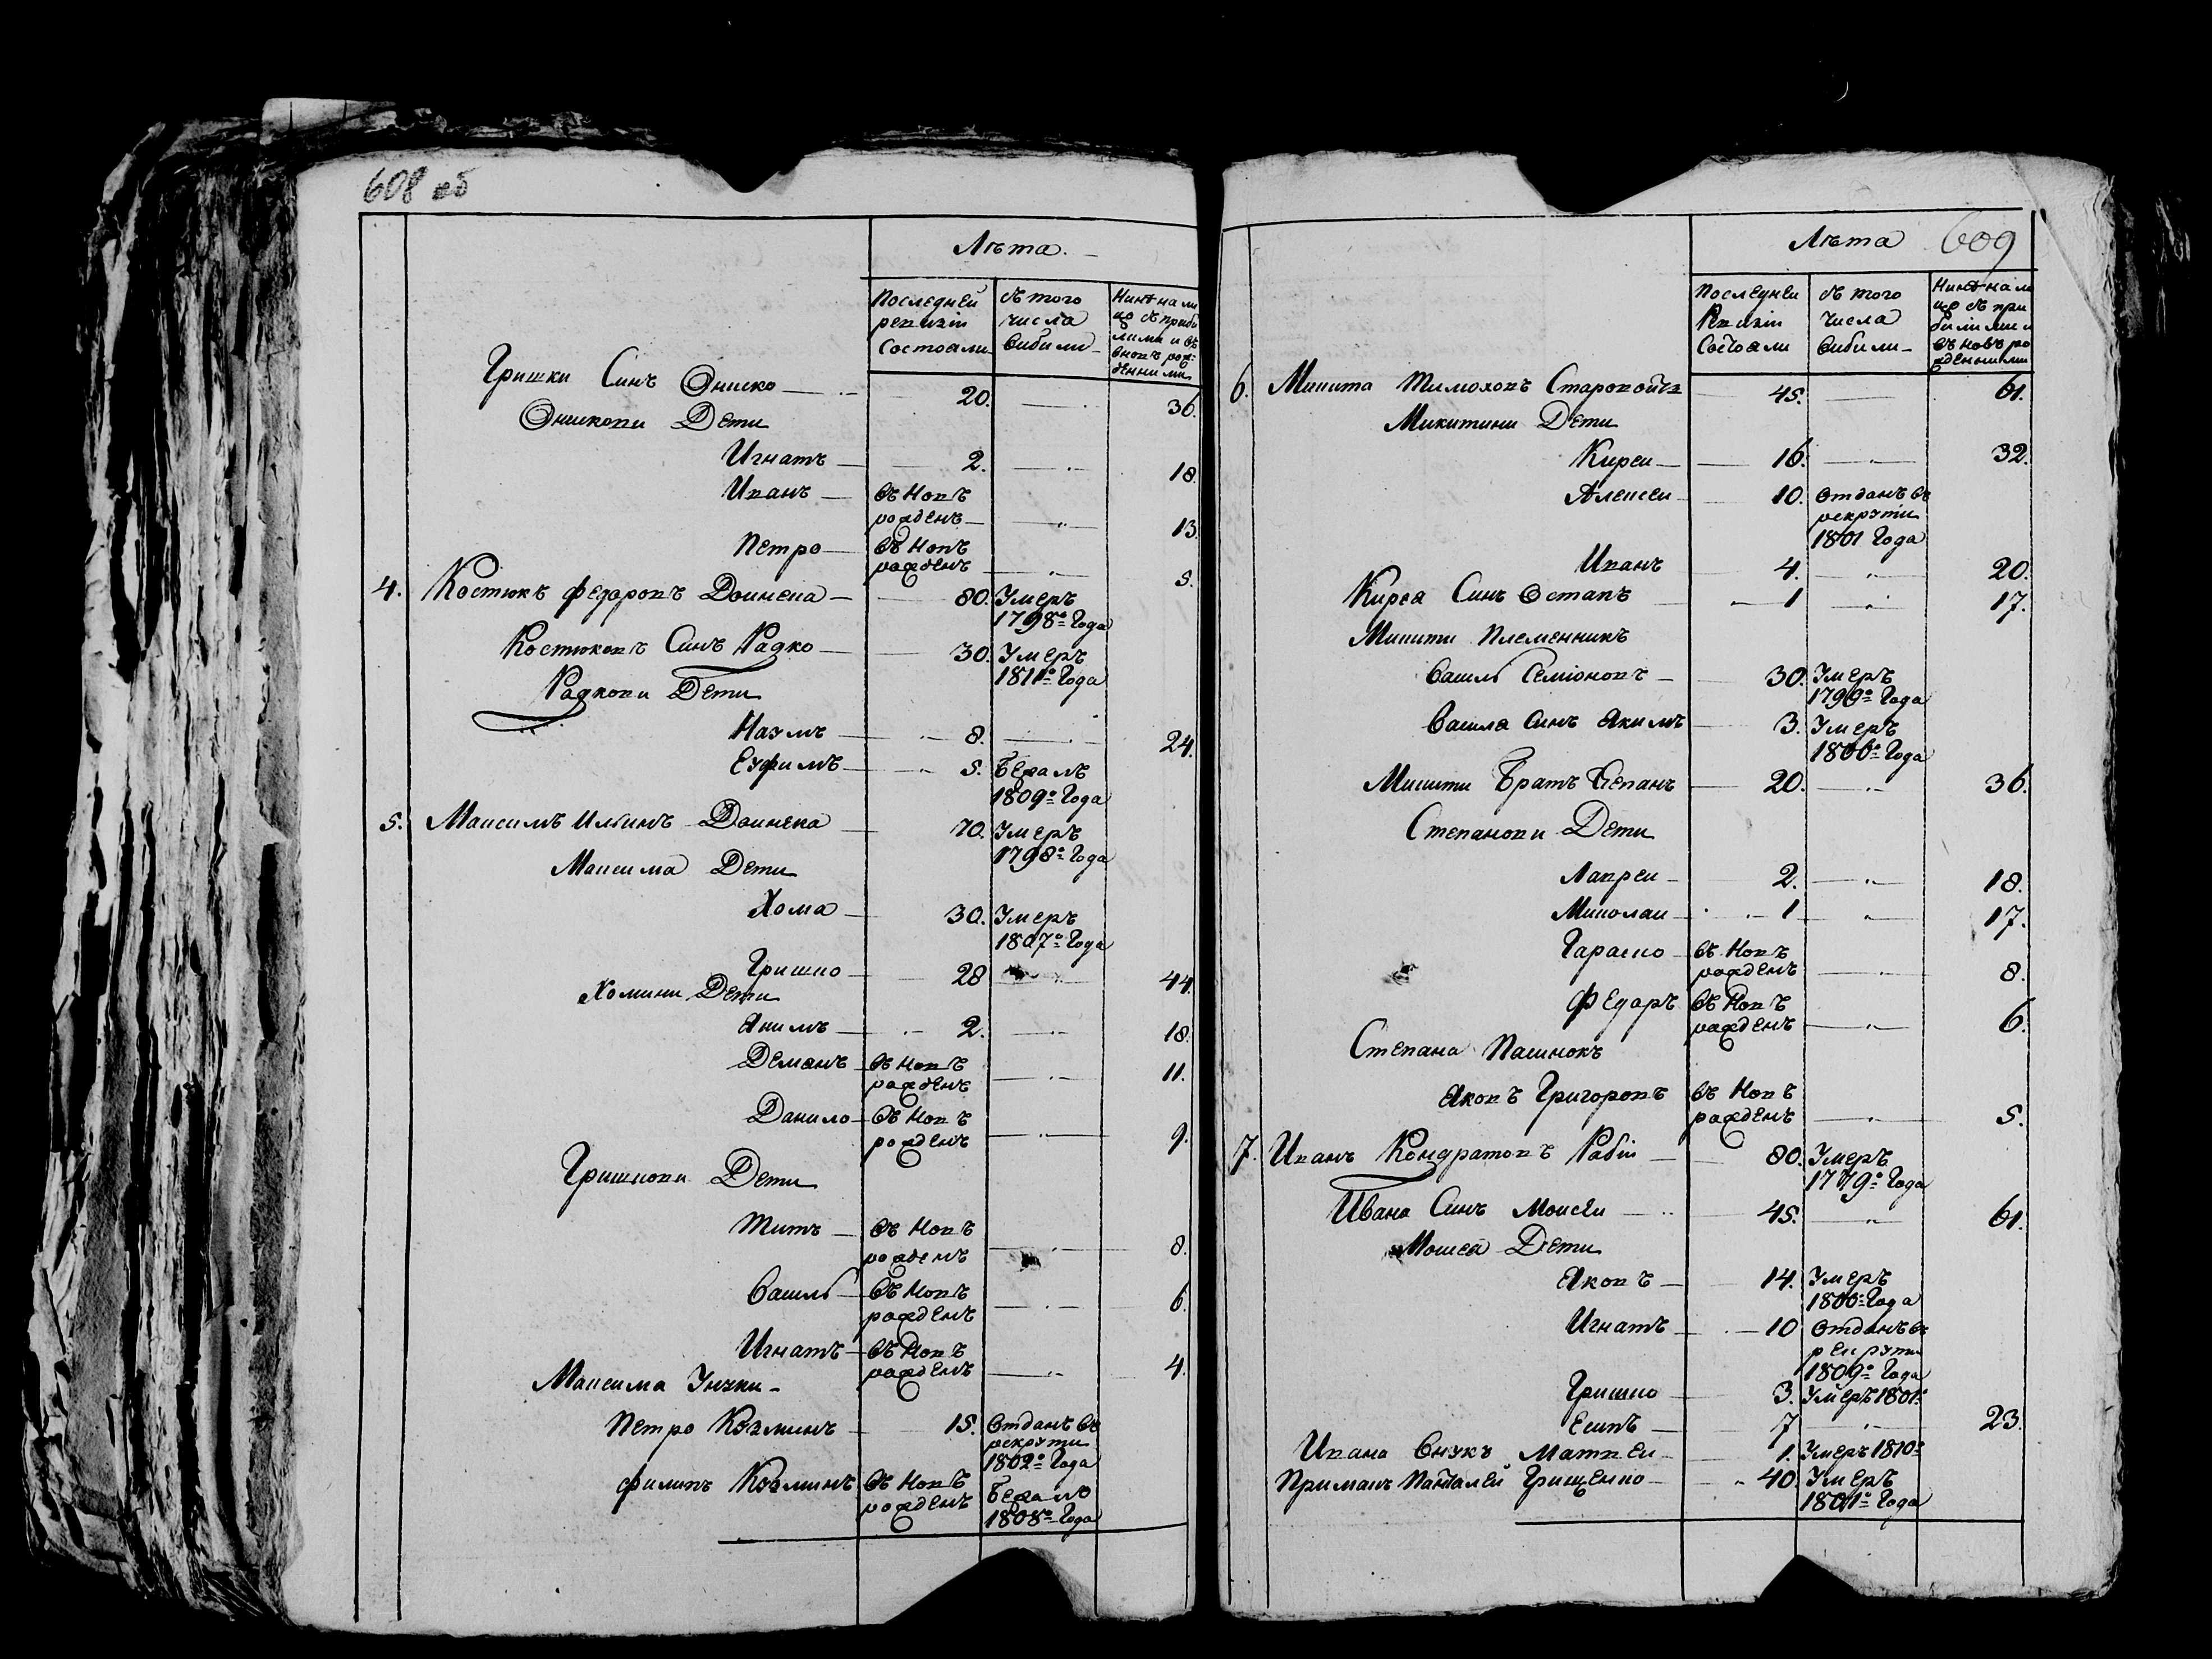 608 об
Лѣта.
Последней ревизіи Состояли
съ того числа выбыли
Нинѣ на лицо съ прибылими и въ Новъ рожденними
Гришки Синъ Ониско 20. 36.
Онискови Дети
Игнатъ 2. 18.
Иванъ въ Новъ рожденъ 13.
Петро въ Новъ рожденъ 5.
4. Костюкъ Федоровъ Двинека 80. Умеръ 1798го Года
Костюковъ Синъ Радко 30. Умеръ 1811го Года
Радкови Дети
Наумъ 8. 24.
Еуфимъ 5. Бежалъ 1809го Года
5. Максимъ Ильинъ Двинека 70. Умеръ 1798го Года
Максима Дети
Хома 30. Умеръ 1807го Года
Гришко 28 44.
Хомини Дети
Якимъ 2. 18.
Демянъ въ Новъ рожденъ 11.
Данило въ Новъ рожденъ 9.
Гришкови Дети
Титъ въ Новъ рожденъ 8.
Василь въ Новъ рожденъ 6.
Игнатъ въ Новъ рожденъ 4.
Максима Унуки
Петро Козминъ 15. Отданъ въ рекрути 1802го Года
Филипъ Козминъ въ Новъ рожденъ Бежалъ 1808го Года
Лѣта
609
Последнеи Ревизіи Состояли
съ того Числа выбили
Нинѣ на лицо съ прибилими и въ новъ рожденними
6. Микита Тимоховъ Старовойтъ 45. 61.
Микитини Дети
Кирей 16. 32.
Алексеи 10. Отданъ въ рекрути 1801 Года
Иванъ 4. 20.
Кирея Синъ Остапъ 1 17.
Микити Племенникъ
Василь Семіоновъ 30. Умеръ 1799го Года
Василя Синъ Якимъ 3. Умеръ 1800го Года
Микити Братъ Степанъ 20. 36.
Степанови Дети
Лаврен 2. 18.
Миколаи 1 17.
Тараско въ Новъ рожденъ 8.
Федаръ въ Новъ рожденъ 6.
Степана Пасинокъ
Яковъ Григоровъ въ Новъ рожденъ 5.
7. Иванъ Кондратовъ Рабіи 80. Умеръ 1779го Года
Ивана Синъ Моисеи 45. 61.
Мосиея Дети
Яковъ 14. Умеръ 1800го Года
Игнатъ 10 Отданъ въ рекрути 1809го Года
Гришко 3. Умеръ 1801го
Есипъ 7 23.
Ивана Внукъ Матвеи 1. Умеръ 1810го
Примакъ Пантелей Грищенко 40. Умеръ 1801го Года